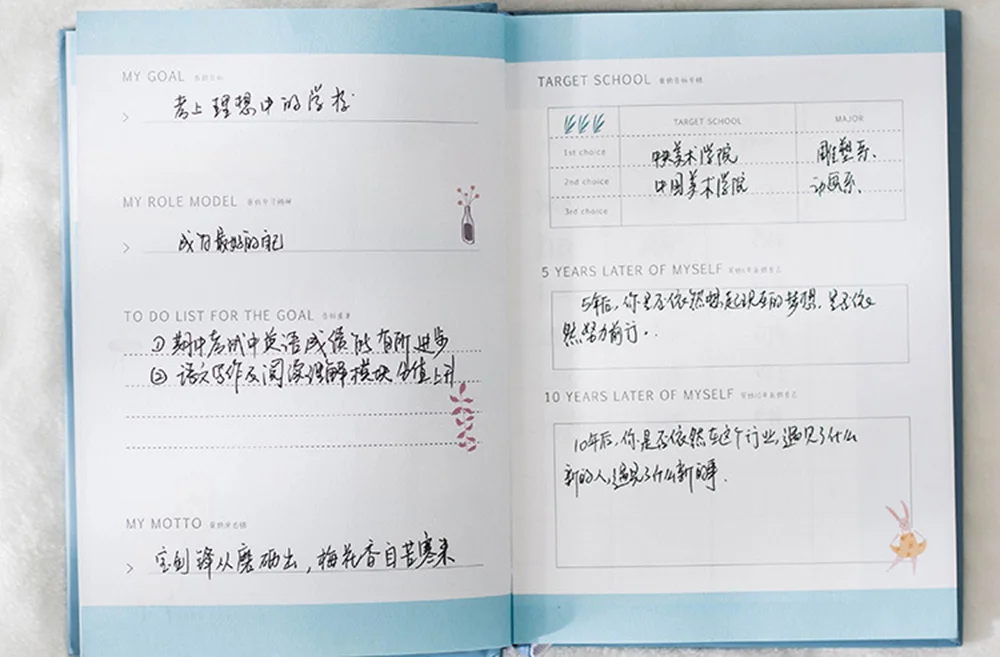 MY GOAL
考上理想中的学校
MY ROLE MODEL
成为最好的自己
TO DO LIST FOR THE GOAL
① 期中考试中英语成绩能有所进步
② 语文写作及阅读理解模块分值上升
MY MOTTO
宝剑锋从磨砺出，梅花香自苦寒来
TARGET SCHOOL
TARGET SCHOOL MAJOR
1st choice 中央美术学院 雕塑系、
2nd choice 中国美术学院 动画系、
3rd choice
5 YEARS LATER OF MYSELF
5年后，你是否依然想起现在的梦想，是否依
然努力前行..
10 YEARS LATER OF MYSELF
10年后，你是否依然在这个行业，遇见了什么
新的人，遇见了什么新的事.